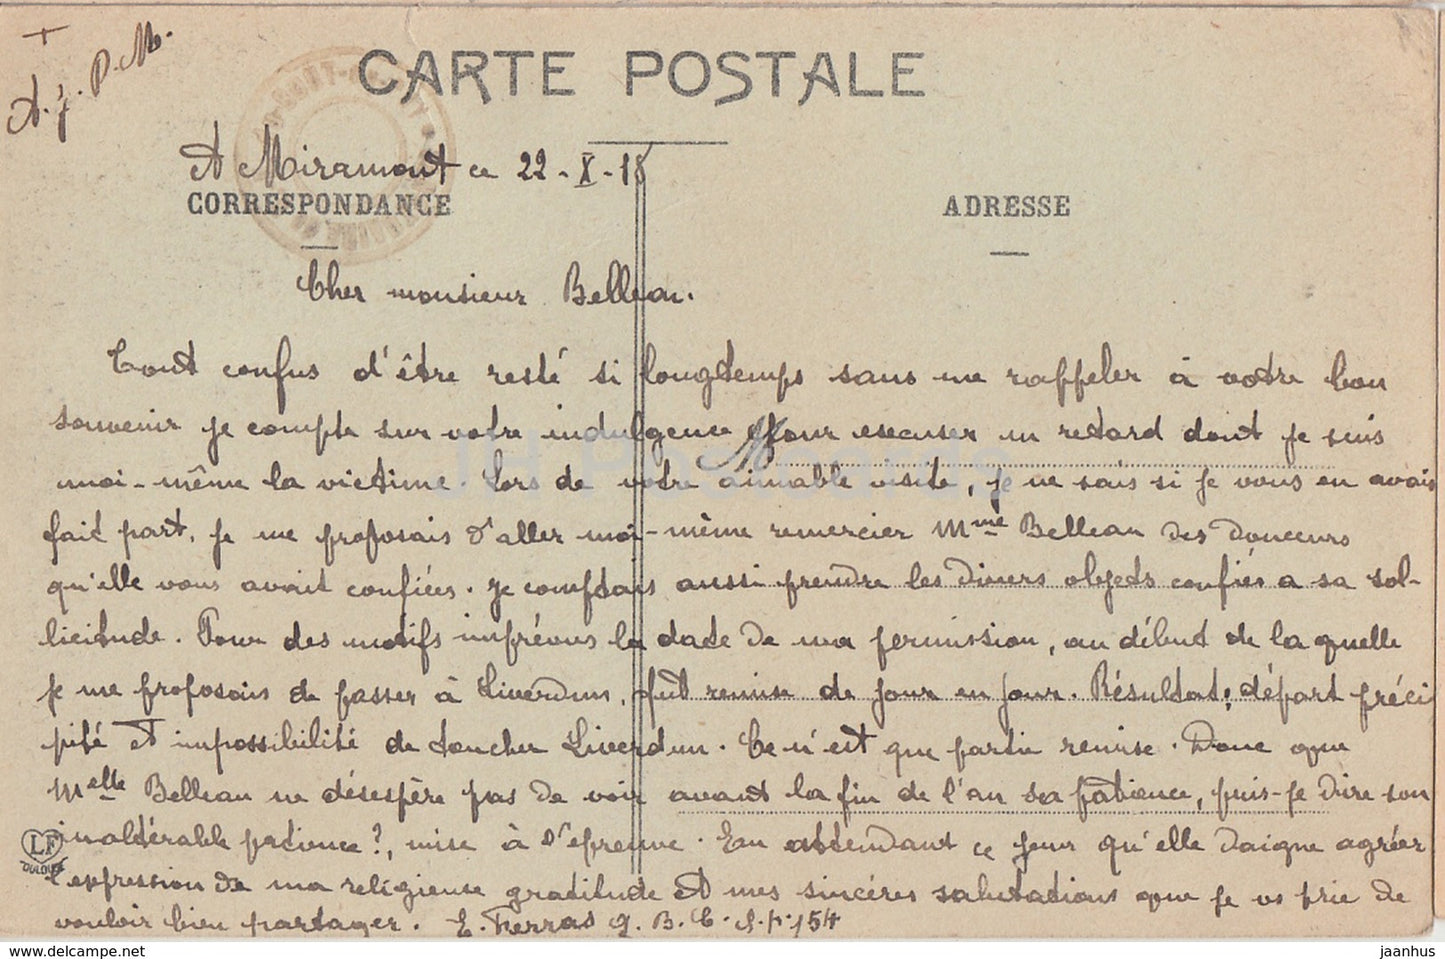 A. J. P. M.
CARTE POSTALE
A Miramont ce 22 - X - 18
CORRESPONDANCE
ADRESSE
Cher monsieur Belleau.
Tout confus d'être resté si longtemps sans me rappeler à votre bon
souvenir je compte sur votre indulgence pour excuser un retard dont je suis
moi-même la victime. Lors de votre aimable visite, je ne sais si je vous en avais
fait part, je me proposais d'aller moi-même remercier Mme Belleau des douceurs
qu'elle vous avait confiées. Je comptais aussi prendre les divers objets confiés à sa sol-
licitude. Pour des motifs imprévus la date de ma permission, au début de laquelle
je me proposais de passer à Liverdun, fut remise de jour en jour. Résultat: départ préci
pité et impossibilité de toucher Liverdun. Ce n'est que partie remise. Donc que
Melle Belleau ne désespère pas de voir avant la fin de l'an sa patience, puis-je dire son
inaltérable patience?, mise à l'épreuve. En attendant ce jour qu'elle daigne agréer
l'expression de ma religieuse gratitude et mes sincères salutations que je vs prie de
vouloir bien partager. E. Ferras J. B. C. S. P. 154
LF
TOULOUSE
JH Postcards
Watermarked sample
jaanhus